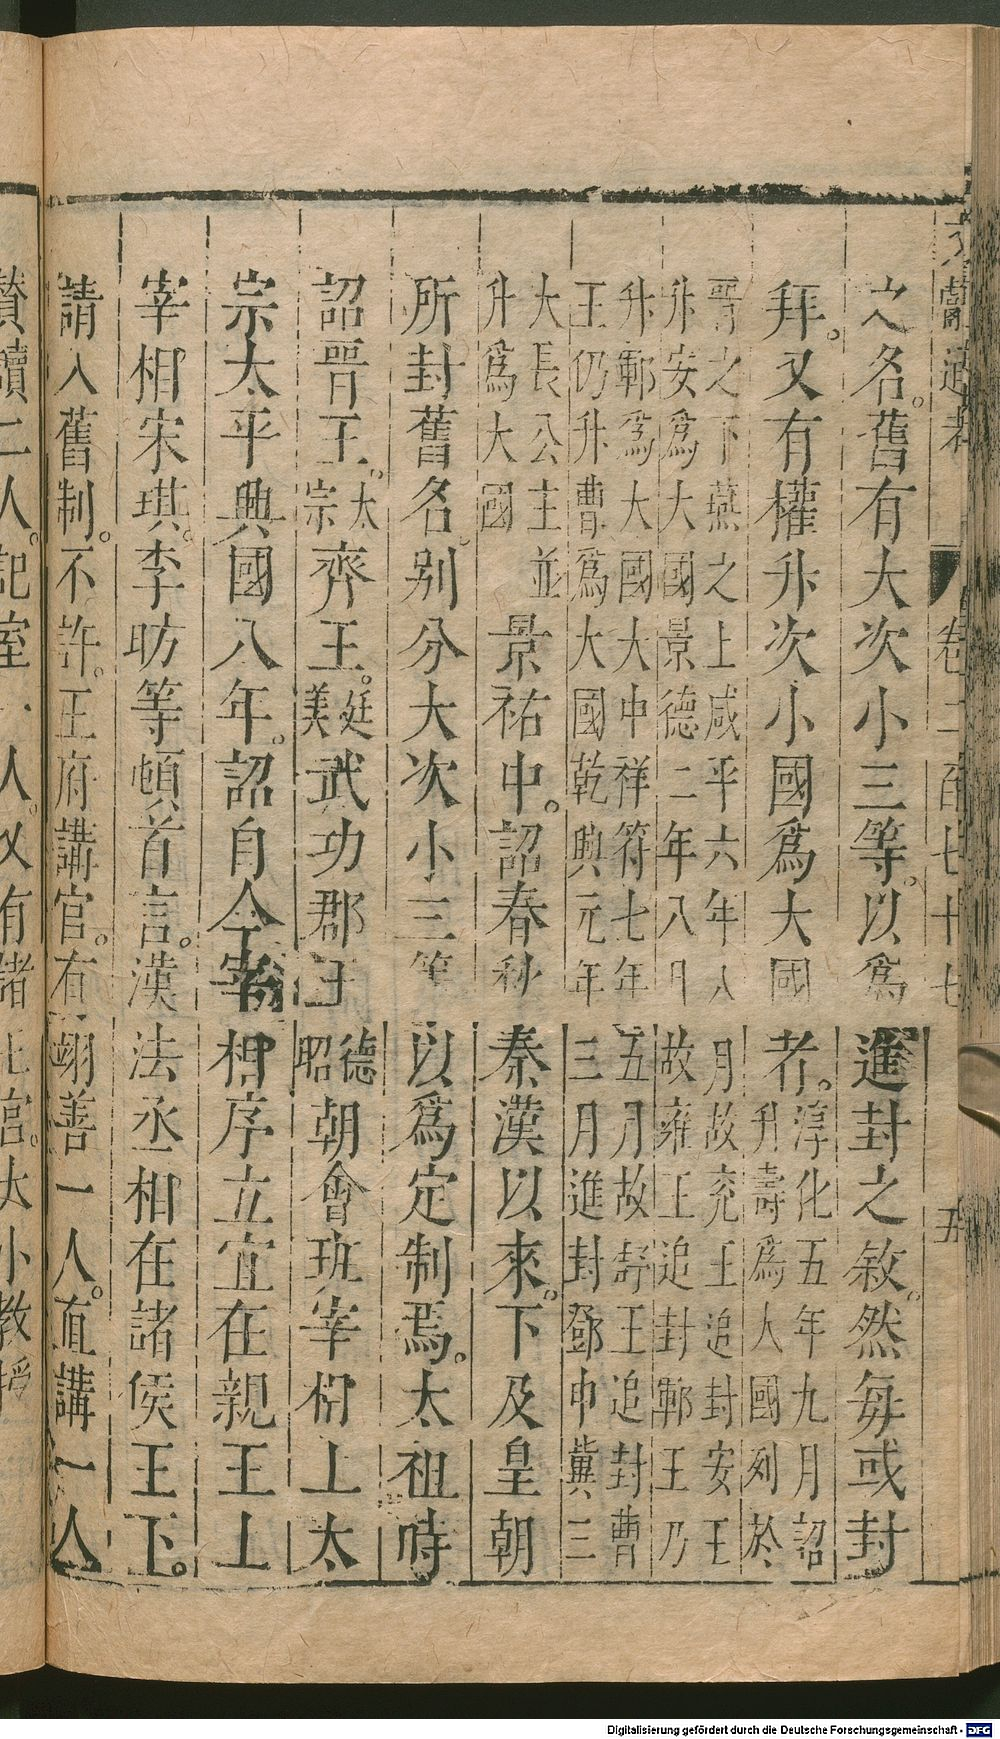 文獻通考 卷二百七十七 五
之名。舊有大次小三等。以爲進封之敘。然每或封
拜。又有權升次小國爲大國者。淳化五年九月詔
升壽爲大國列於
晉之下燕之上咸平六年八月故兗王追封安王
升安爲大國景德二年八月故雍王追封鄆王乃
升鄆爲大國大中祥符七年五月故舒王追封曹
王仍升曹爲大國乾興元年三月進封鄧申冀三
大長公主並
升爲大國
景祐中。詔春秋秦漢以來。下及皇朝
所封舊名。别分大次小三等以爲定制焉。太祖時
詔晉王。太宗齊王。廷美武功郡王德昭朝會班宰相上太
宗太平興國八年。詔自今宰相序立宜在親王上
宰相宋琪。李昉等頓首言。漢法丞相在諸侯王下。
請入舊制。不許。王府講官。有翊善一人。直講一人
贊讀二人。記室一人。又有諸王宮。大小教授
Digitalisierung gefördert durch die Deutsche Forschungsgemeinschaft - DFG